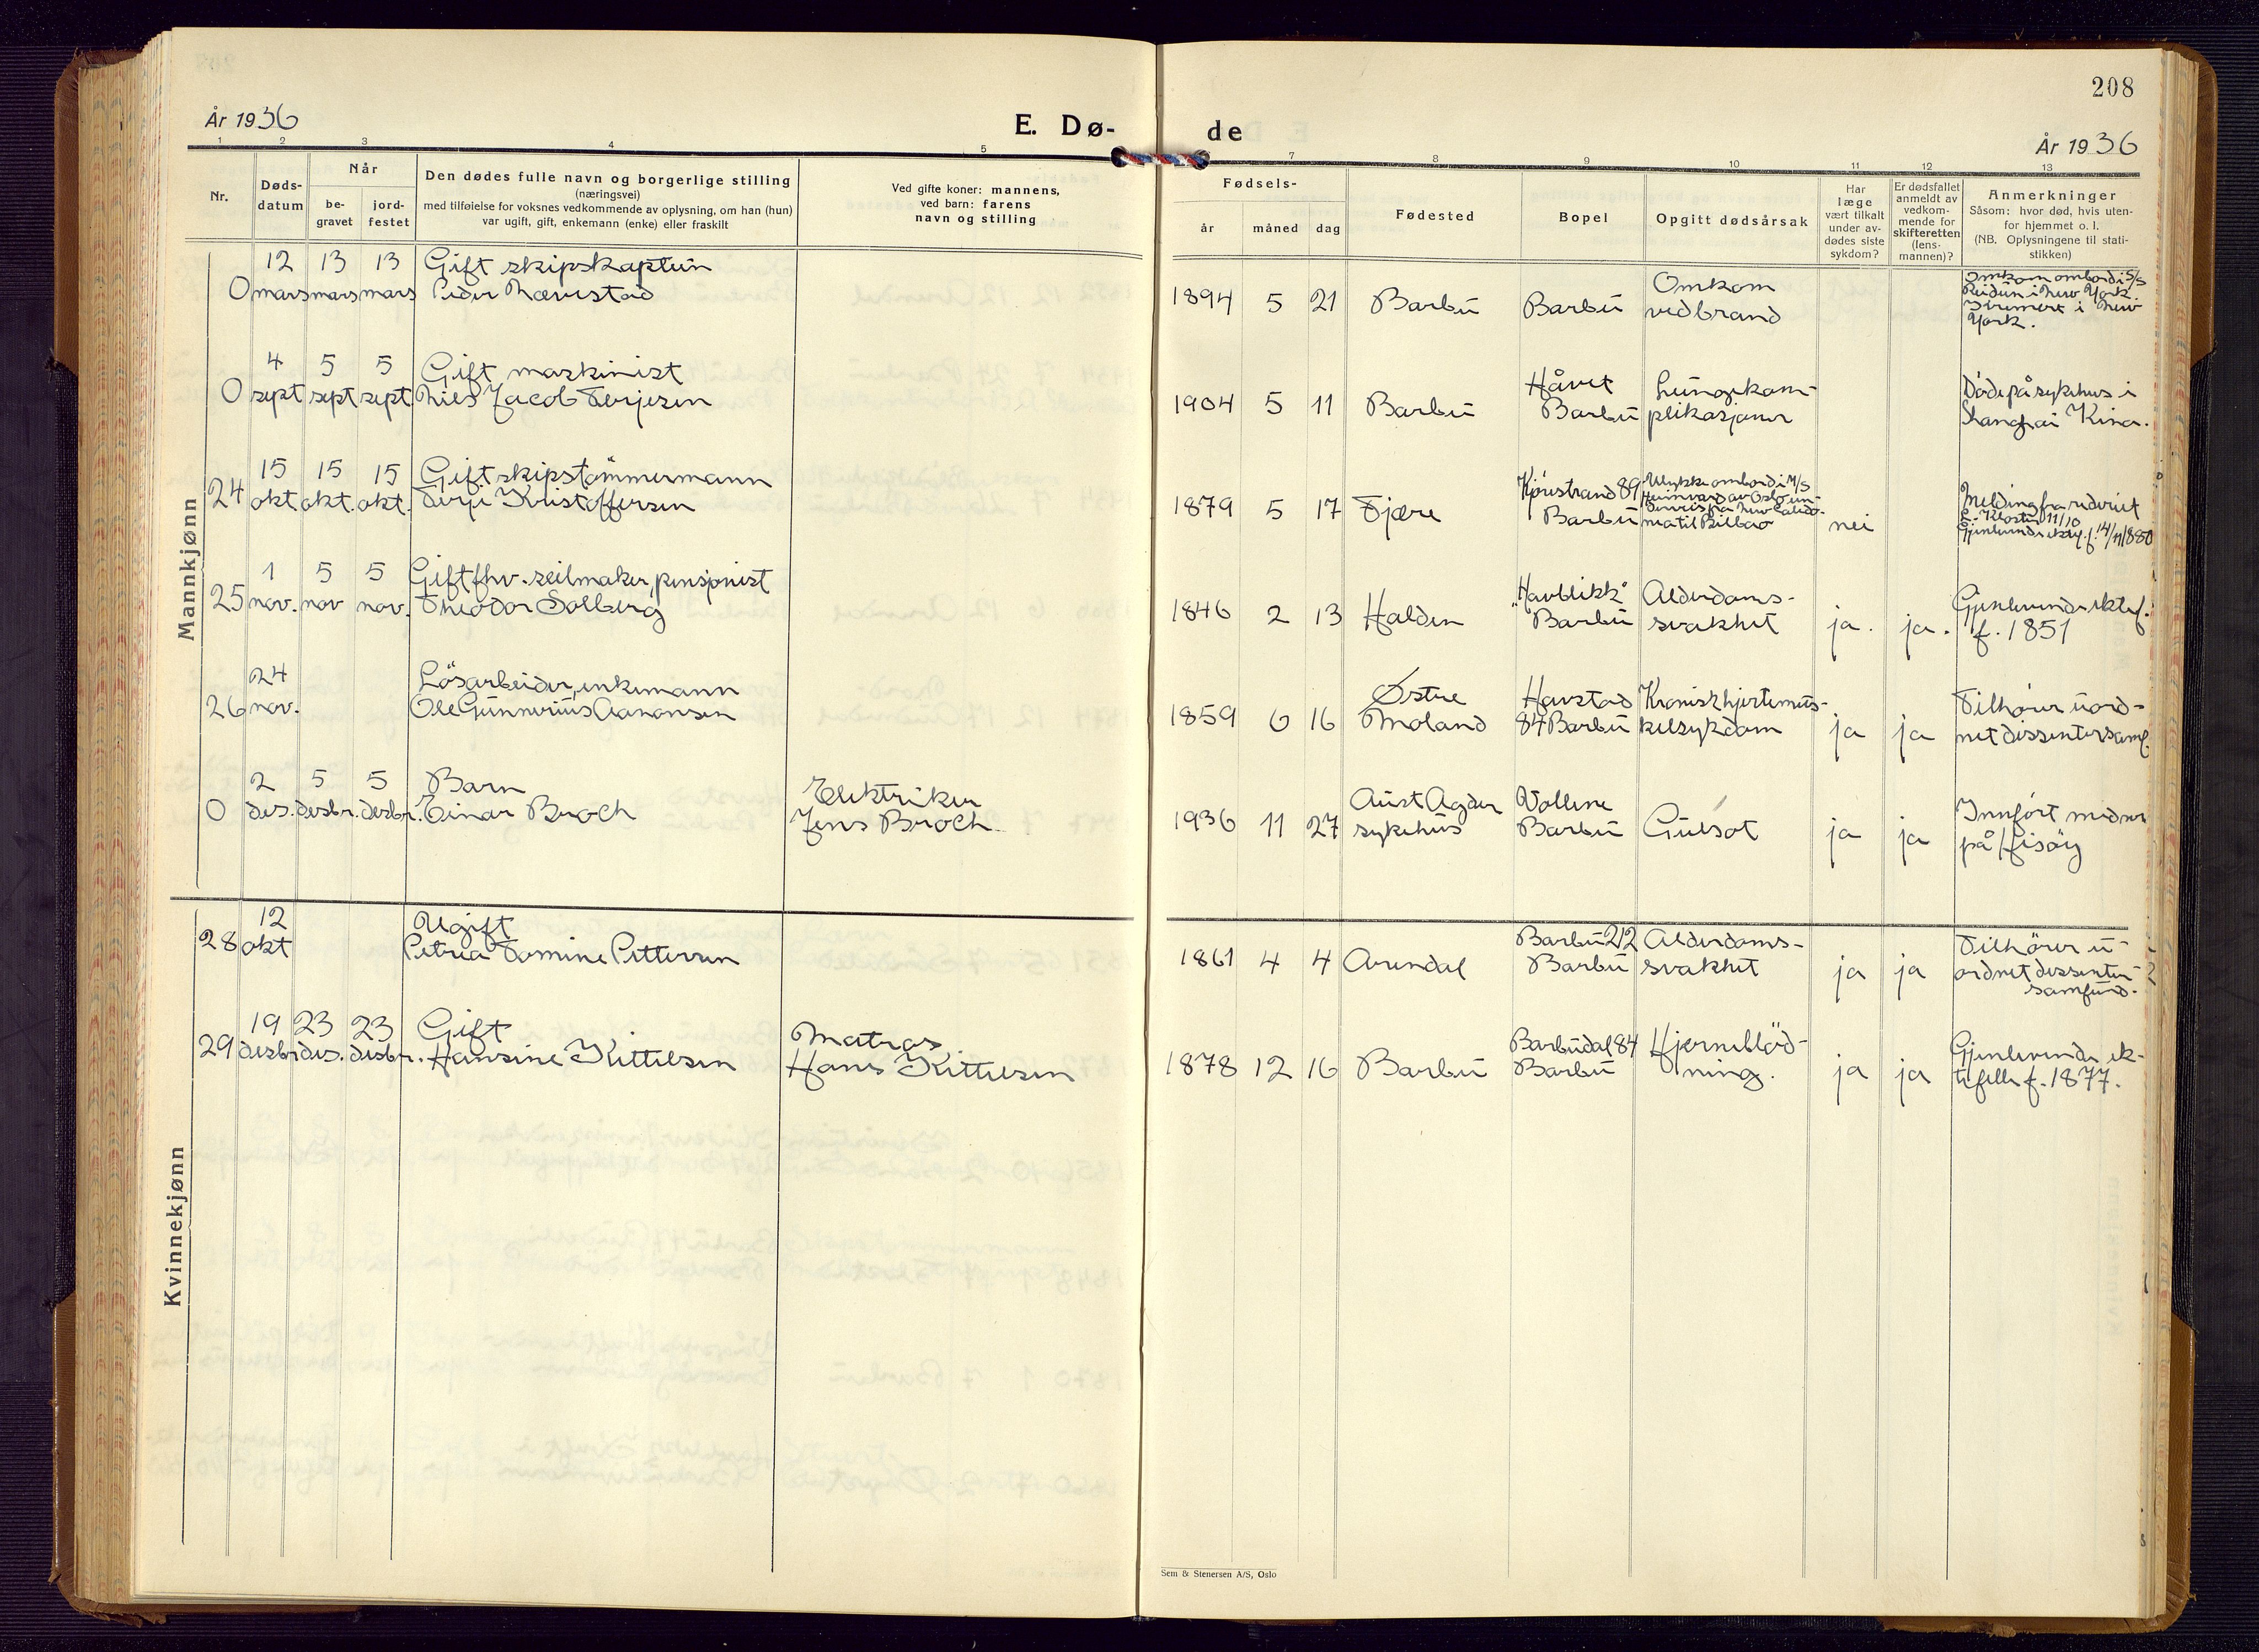 208
År 1936
E. Dø-
de
År 1936
1 2 3 4 5
7 8 9 10 11 12 13
Nr.
Døds-
datum
Når
be-
gravet
jord-
festet
Den dødes fulle navn og borgerlige stilling
(næringsvei)
med tilføielse for voksnes vedkommende av oplysning, om han (hun)
var ugift, gift, enkemann (enke) eller fraskilt
Ved gifte koner: mannens,
ved barn: farens
navn og stilling
Fødsels-
år måned dag
Fødested
Bopel
Opgitt dødsårsak
Har
læge
vært tilkalt
under av-
dødes siste
sykdom?
Er dødsfallet
anmeldt av
vedkom-
mende for
skifteretten
(lens-
mannen)?
Anmerkninger
Såsom: hvor død, hvis uten-
for hjemmet o. l.
(NB. Oplysningene til stati-
stikken)
Mannkjønn
12 13 13 Gift skipskaptein
0 mars mars mars Peder Nævestad
1894 5 21 Barbu Barbu
Omkom
ved brand
Omkom ombord i S/S
Reidun i New York.
Kremert i New
York.
4 5 5 Gift maskinist
0 sept sept sept Nils Jacob Terjesen
1904 5 11 Barbu
Håvet
Barbu
Lungekom-
plikasjoner
Døde på sykehus i
Shanghai Kina.
15 15 15 Gift skipstømmermann
24 okt okt. okt. Terje Kristoffersen
1879 5 17 Fjære
89
Barbu
Ulykke ombord i M/S
av Oslo un-
derveis fra New Caledo-
nia til Bilbao
nei
Melding fra rederiet
Kloster 11/10
Gjenlevende
1880
1 5 5 Gift fhv. seilmaker, pensjonist
25 nov. nov nov. Theodor Solberg
1846 2 13 Halden
"Havblikk"
Barbu
Alderdoms-
svakhet
ja. ja.
Gjenlevende ektef.
f. 1851
24 Løsarbeider, enkemann
26 nov. Ole Gunnerius Aanonsen
1859 6 16
Østre
Moland
Havstad
84 Barbu
Kronisk hjertemus-
kelsykdom
ja ja
Tilhører uord-
net dissentersamf.
2 5 5 Barn
0 des. desbr. desbr. Einar Broch
Elektriker
Jens Broch
1936 11 27
Aust Agder
sykehus
Vollene
Barbu
Gulsot
ja ja
Innført med nr
på Hisøy
Kvinnekjønn
12 Ugift
28 okt Petrea Tomine Pettersen
1861 4 4 Arendal
Barbu 212
Barbu
Alderdoms-
svakhet
ja ja
Tilhører u-
ordnet dissenter-
samfund.
19 23 23 Gift
29 desbr des. desbr. Hansine Kittelsen
Matros
Hans Kittelsen
1878 12 16 Barbu
Barbudal 84
Barbu
Hjerneblød-
ning.
ja ja
Gjenlevende ek-
tefelle f. 1877.
Sem & Stenersen A/S, Oslo